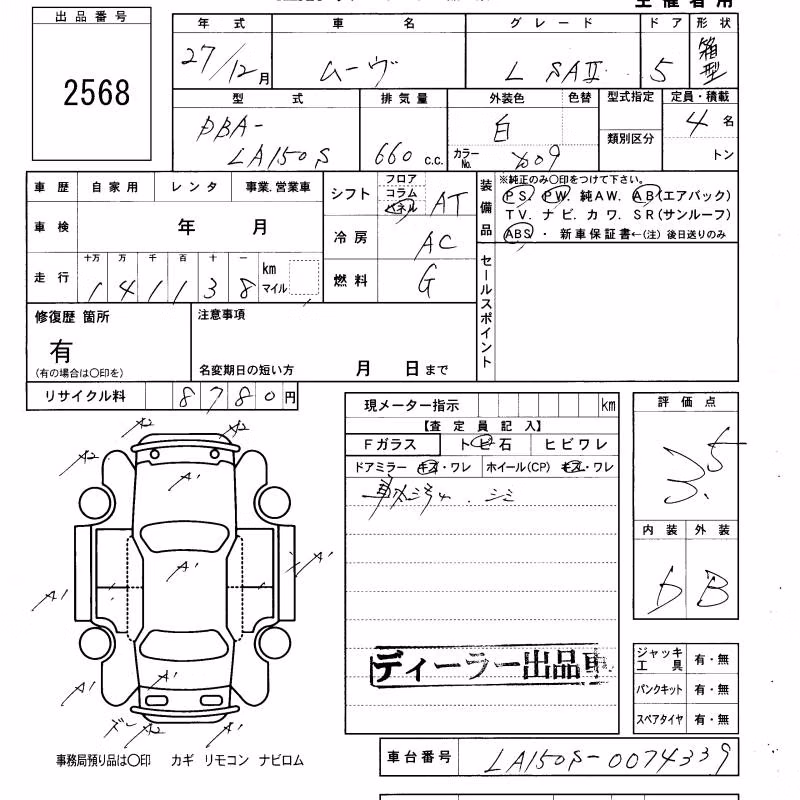 主催者用
出品番号
2568
年式 車名 グレード ドア 形状
27/12月 ムーヴ L SAII 5 箱型
型式 排気量 外装色 色替 型式指定 定員・積載
DBA- 660 c.c. 白 類別区分 4名
LA150S カラーNo. X09 トン
車歴 自家用 レンタ 事業.営業車
車検 年 月
走行 十万 万 千 百 十 一 km マイル
141138
シフト フロア コラム パネル AT
冷房 AC
燃料 G
装備品
※純正のみ〇印をつけて下さい。
PS. PW. 純AW. AB(エアバック)
TV. ナビ. カワ. SR(サンルーフ)
ABS ・ 新車保証書←(注) 後日送りのみ
セールスポイント
修復歴 箇所
有
(有の場合は〇印を)
注意事項
名変期日の短い方 月 日まで
リサイクル料 8780円
現メーター指示 km
【査定員記入】
Fガラス トビ石 ヒビワレ
ドアミラー キズ・ワレ ホイール(CP) キズ・ワレ
シミ
評価点
3.5
内装 外装
D B
A2 A2
A2 A2
A1
A1 A1
A1
A1 A1 A1
A2
ディーラー出品車
ジャッキ工具 有・無
パンクキット 有・無
スペアタイヤ 有・無
事務局預り品は〇印 カギ リモコン ナビロム
車台番号 LA150S-0074339